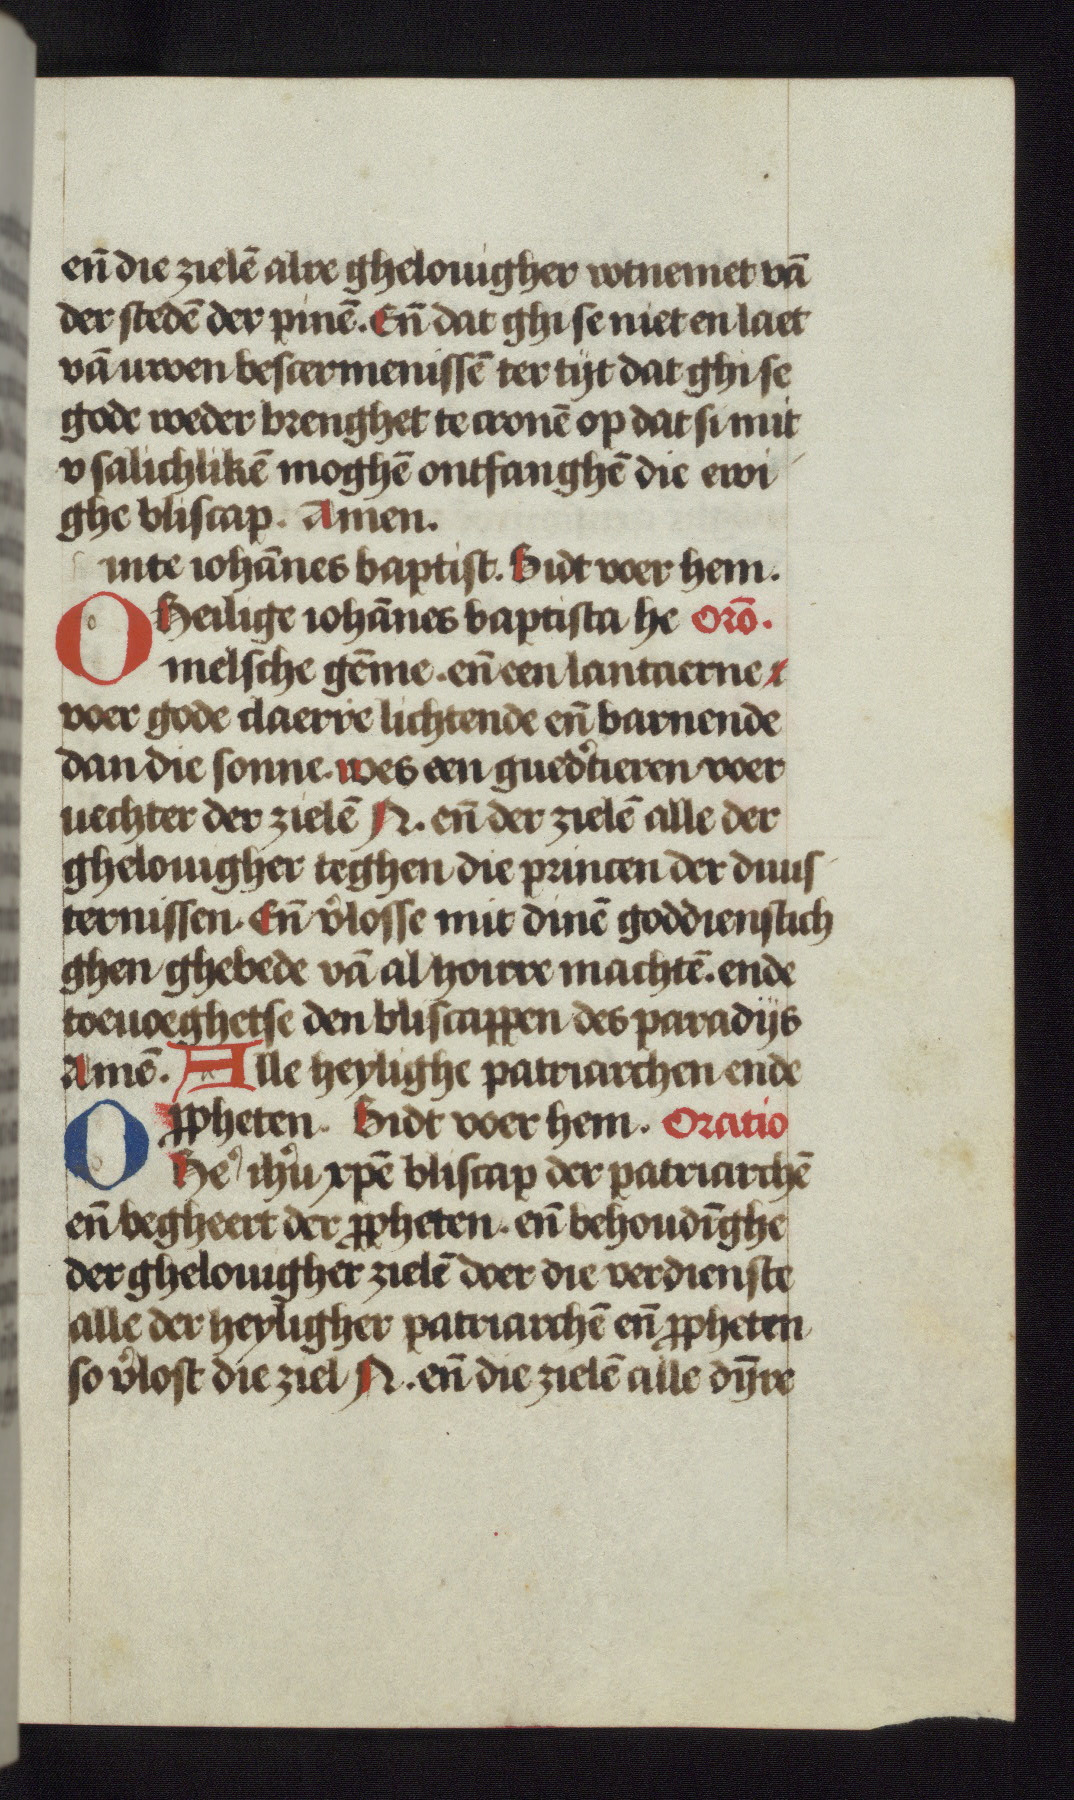 en̄ die zielē alre ghelouigher wtnemet vā
der stedē der pinē. En̄ dat ghi se niet en laet
vā uwen bescermenissē ter tijt dat ghi se
gode weder brenghet te cronē op dat si mit
v salichlikē moghē ontfanghē die ewi
ghe bliscap. Amen.
inte iohānes baptist. Bidt voer hem.
O Heilige iohānes baptista he Orō.
melsche gēme. en̄ een lantaerne
voer gode claerre lichtende en̄ barnende
dan die sonne. wes een gued'tieren voer
uechter der zielē N. en̄ der zielē alle der
ghelouigher teghen die princen der duus
ternissen. En̄ v'losse mit dinē goddienstich
ghen ghebede vā al hoirre machtē. ende
toeuoeghetse den bliscappen des paradijs
Amē. Alle heylighe patriarchen ende
ꝓpheten. Bidt voer hem. Oratio
O He' ih'u xpē bliscap der patriarchē
en̄ begheert der ꝓpheten. en̄ behoudīghe
der ghelouigher zielē doer die verdienste
alle der heyligher patriarchē en̄ ꝓpheten
so v'lost die ziel N. en̄ die zielē alle dȳre